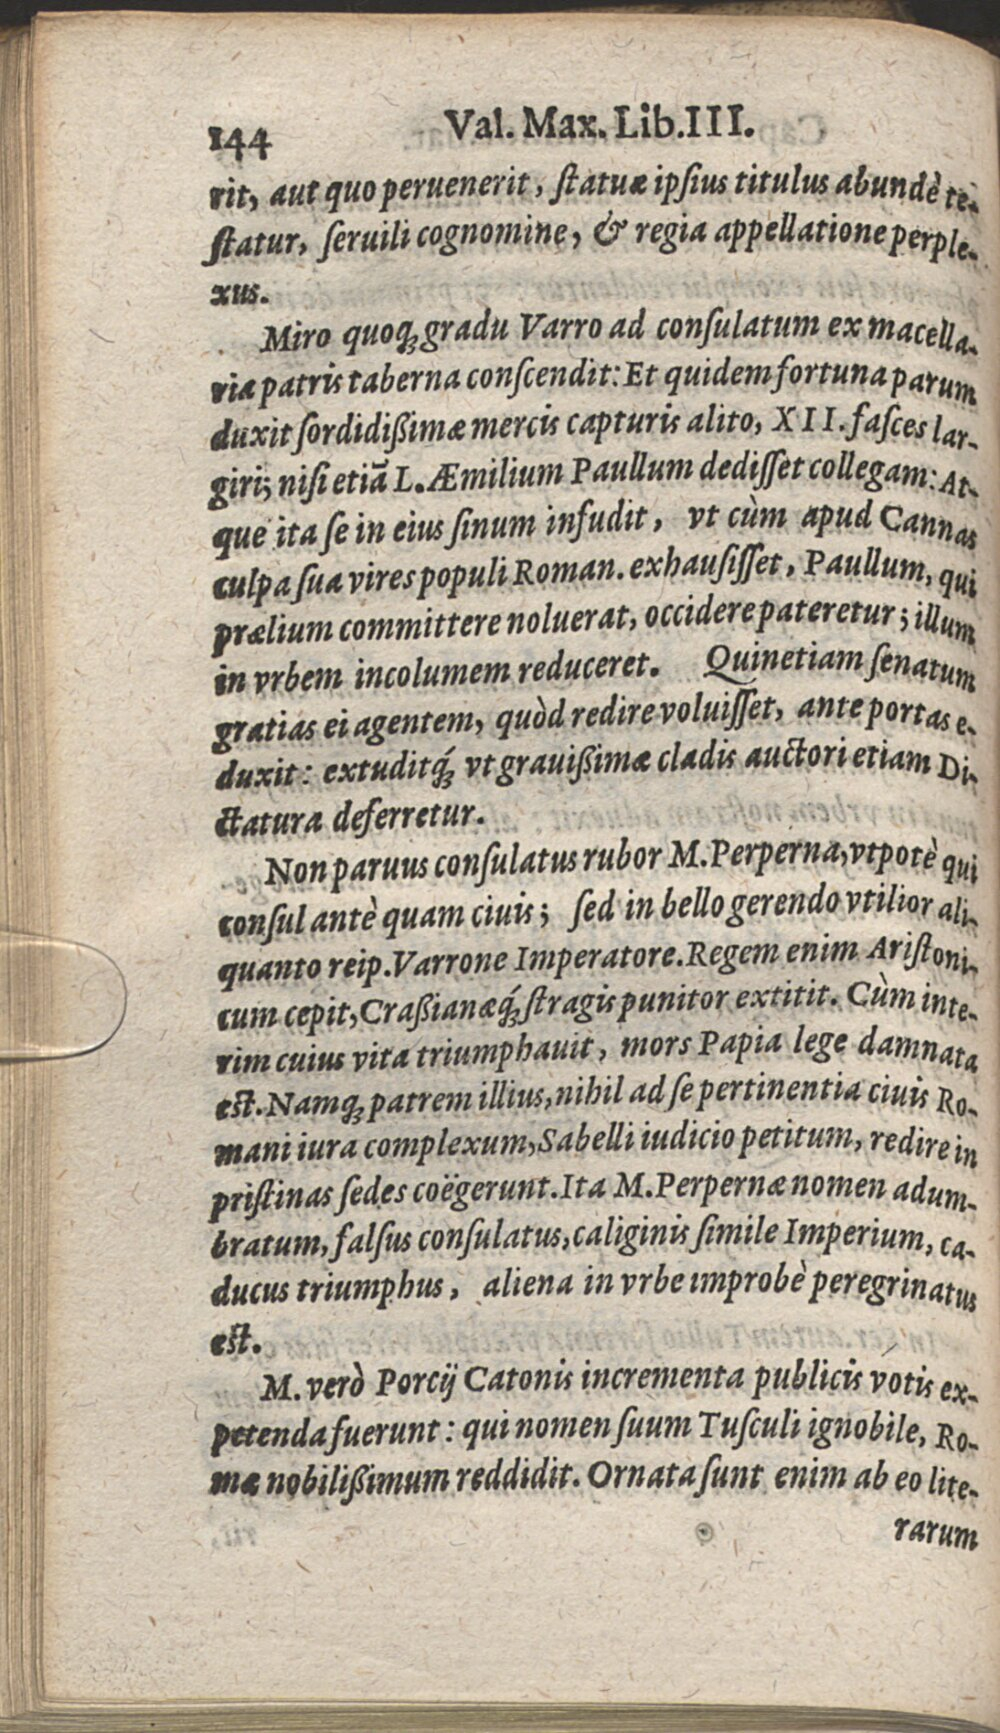 144 Val. Max. Lib. III.
rit, aut quo peruenerit, ſtatuæ ipſius titulus abundè te-
ſtatur, ſeruili cognomine, & regia appellatione perple-
xus.
Miro quoq; gradu Varro ad conſulatum ex macella-
ria patris taberna conſcendit: Et quidem fortuna parum
duxit ſordidißimæ mercis capturis alito, XII. faſces lar-
giri; niſi etiā L. Æmilium Paullum dediſſet collegam: At-
que ita ſe in eius ſinum infudit, vt cùm apud Cannas
culpa ſua vires populi Roman. exhauſiſſet, Paullum, qui
prælium committere noluerat, occidere pateretur; illum
in vrbem incolumem reduceret. Quinetiam ſenatum
gratias ei agentem, quòd redire voluiſſet, ante portas e-
duxit: extuditq́; vt grauißimæ cladis auctori etiam Di-
ctatura deferretur.
Non paruus conſulatus rubor M. Perperna, vtpotè qui
conſul antè quam ciuis; ſed in bello gerendo vtilior ali-
quanto reip. Varrone Imperatore. Regem enim Ariſtoni-
cum cepit, Craßianæq́; ſtragis punitor extitit. Cùm inte-
rim cuius vita triumphauit, mors Papia lege damnata
eſt. Namq; patrem illius, nihil ad ſe pertinentia ciuis Ro-
mani iura complexum, Sabelli iudicio petitum, redire in
priſtinas ſedes coëgerunt. Ita M. Perpernæ nomen adum-
bratum, falſus conſulatus, caliginis ſimile Imperium, ca-
ducus triumphus, aliena in vrbe improbè peregrinatus
eſt.
M. verò Porcij Catonis incrementa publicis votis ex-
petenda fuerunt: qui nomen ſuum Tuſculi ignobile, Ro-
mæ nobilißimum reddidit. Ornata ſunt enim ab eo lite-
rarum